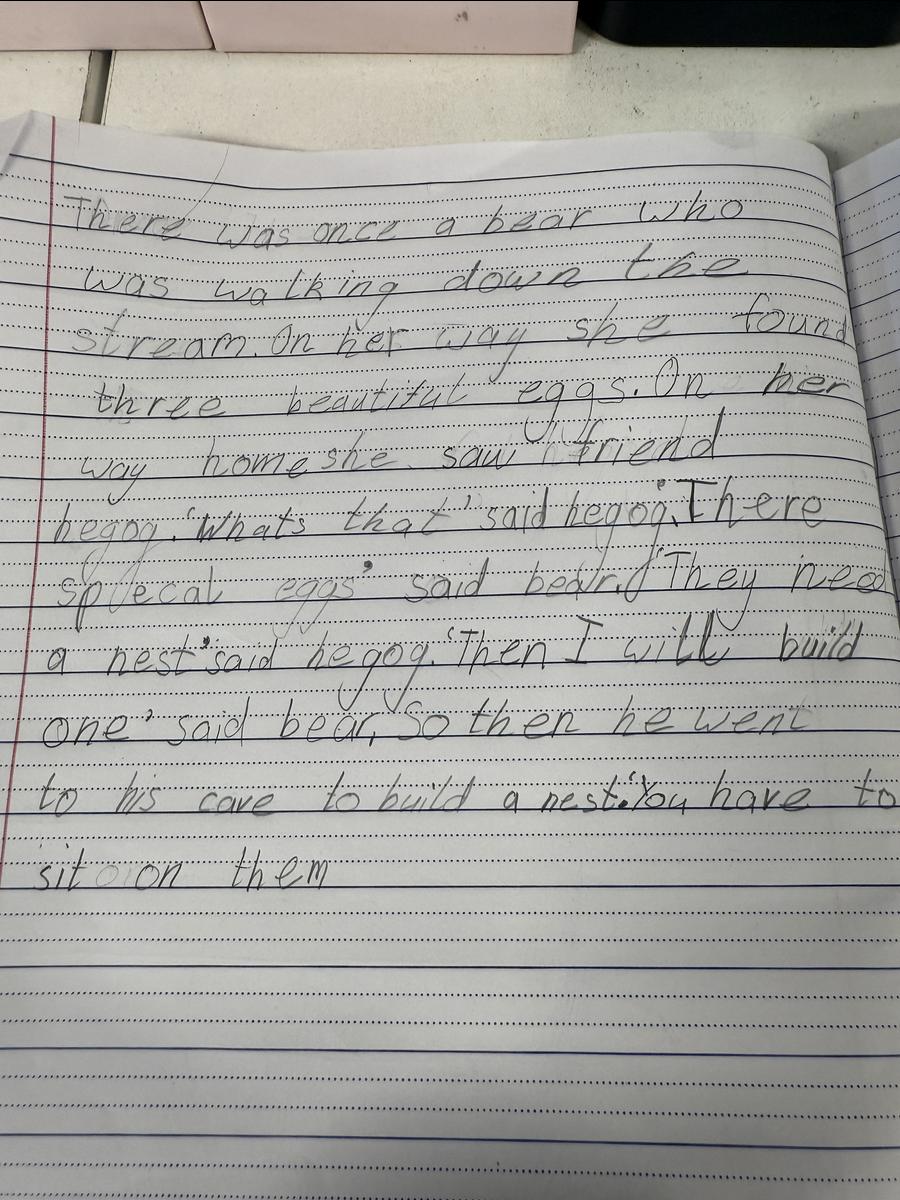 There was once a bear who
was walking down the
stream. On her way she found
three beautiful eggs. On her
way home she saw friend
hegog. 'Whats that' said hegog. 'There
specal eggs' said bear. 'They need
a nest' said hegog. 'Then I will build
one' said bear, So then he went
to his cave to build a nest. 'You have to
sit on them